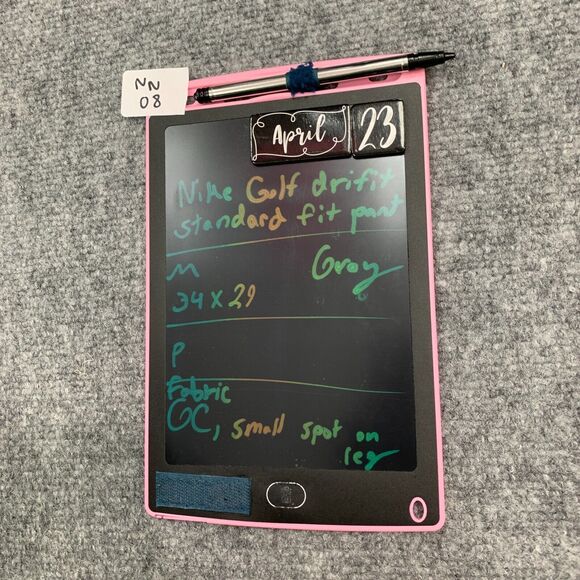 NN
08
April 23
Nike Golf drifit
standard fit pant
M Gray
34 x 29
P
Fabric
GC, small spot on
leg